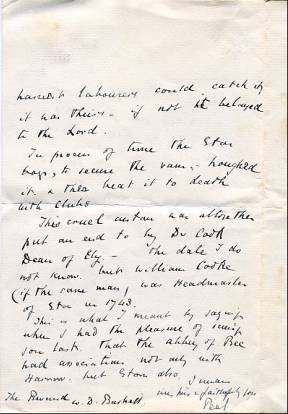 harvest labourers could catch it,
it was theirs - if not it belonged
to the Lord.
In process of time the Eton
boys, to secure the ram, - houghed
it & then beat it to death
with clubs
This cruel custom was altogether
put an end to by Dr Cook
Dean of Ely. - the date I do
not know. but William Cooke
(if the same man) was Headmaster
of Eton in 1743.
This is what I meant by saying
when I had the pleasure of seeing
you last. that the abbey of Bec
had associations not only with
Harrow. but Eton also.
I remain
faithfully yrs
The Reverend W. D. Bushell